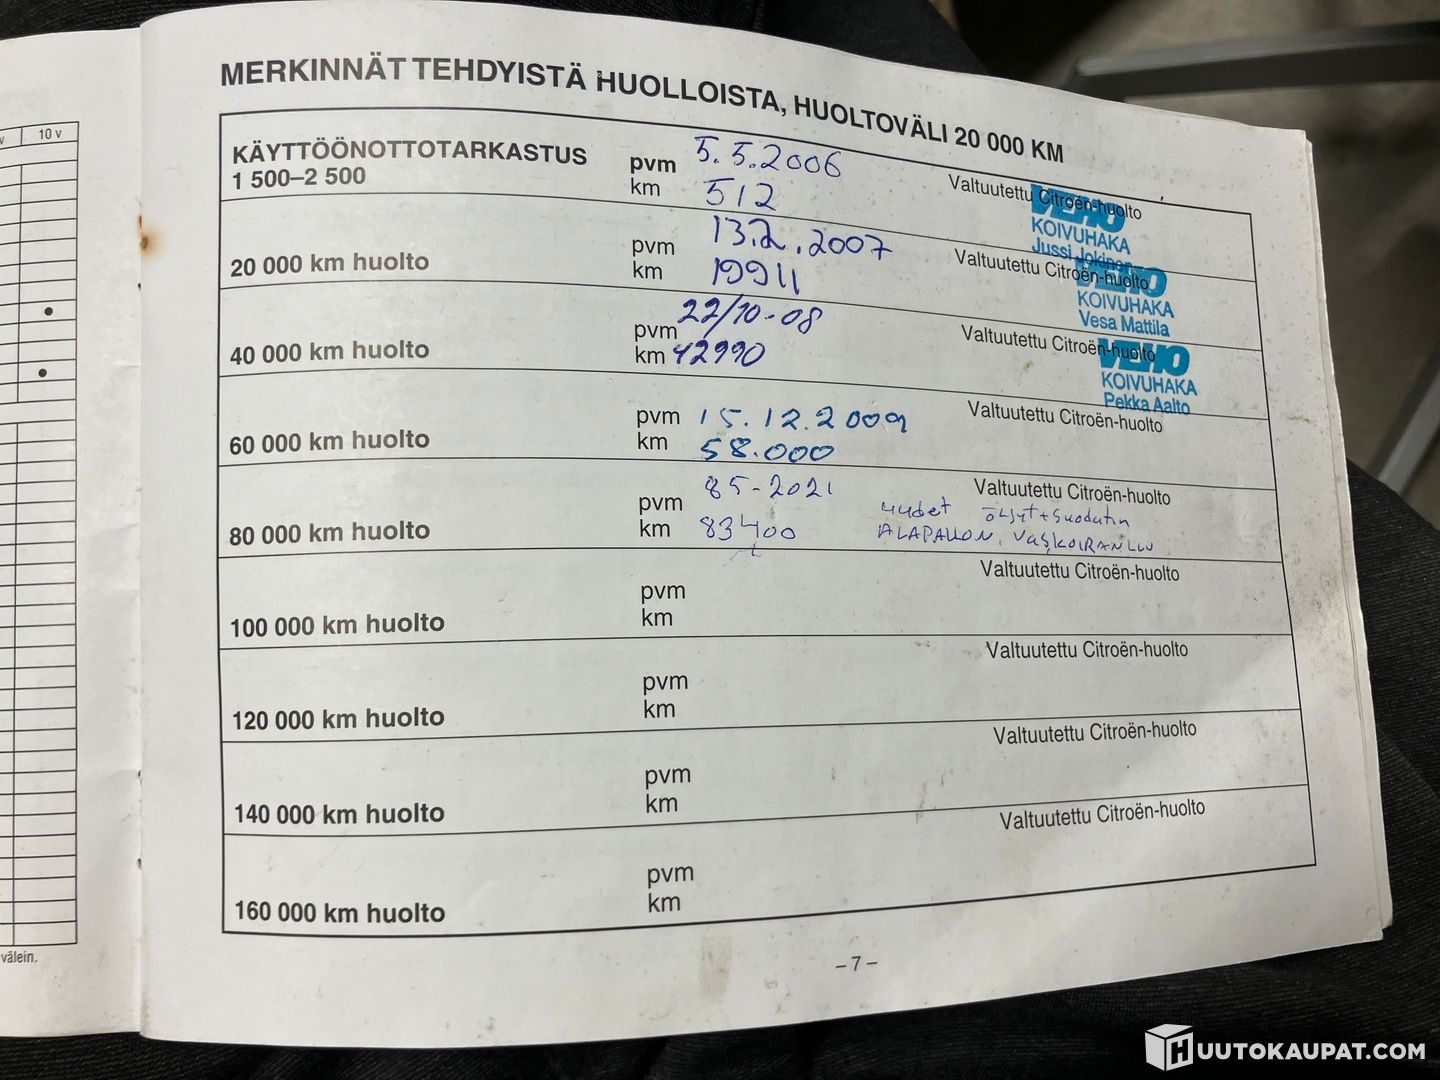 v 10 v
välein.
MERKINNÄT TEHDYISTÄ HUOLLOISTA, HUOLTOVÄLI 20 000 KM
KÄYTTÖÖNOTTOTARKASTUS
1 500–2 500
pvm 5.5.2006
km 512
Valtuutettu Citroën-huolto
VEHO
KOIVUHAKA
Jussi Jokinen
20 000 km huolto
pvm 13.2.2007
km 19911
Valtuutettu Citroën-huolto
VEHO
KOIVUHAKA
Vesa Mattila
40 000 km huolto
pvm 22/10-08
km 42990
Valtuutettu Citroën-huolto
VEHO
KOIVUHAKA
Pekka Aalto
60 000 km huolto
pvm 15.12.2009
km 58.000
Valtuutettu Citroën-huolto
80 000 km huolto
pvm 85-2021
km 83400
Valtuutettu Citroën-huolto
uudet öljyt+suodatin
ALAPALLON,
100 000 km huolto
pvm
km
Valtuutettu Citroën-huolto
120 000 km huolto
pvm
km
Valtuutettu Citroën-huolto
140 000 km huolto
pvm
km
Valtuutettu Citroën-huolto
160 000 km huolto
pvm
km
Valtuutettu Citroën-huolto
–7–
HUUTOKAUPAT.COM